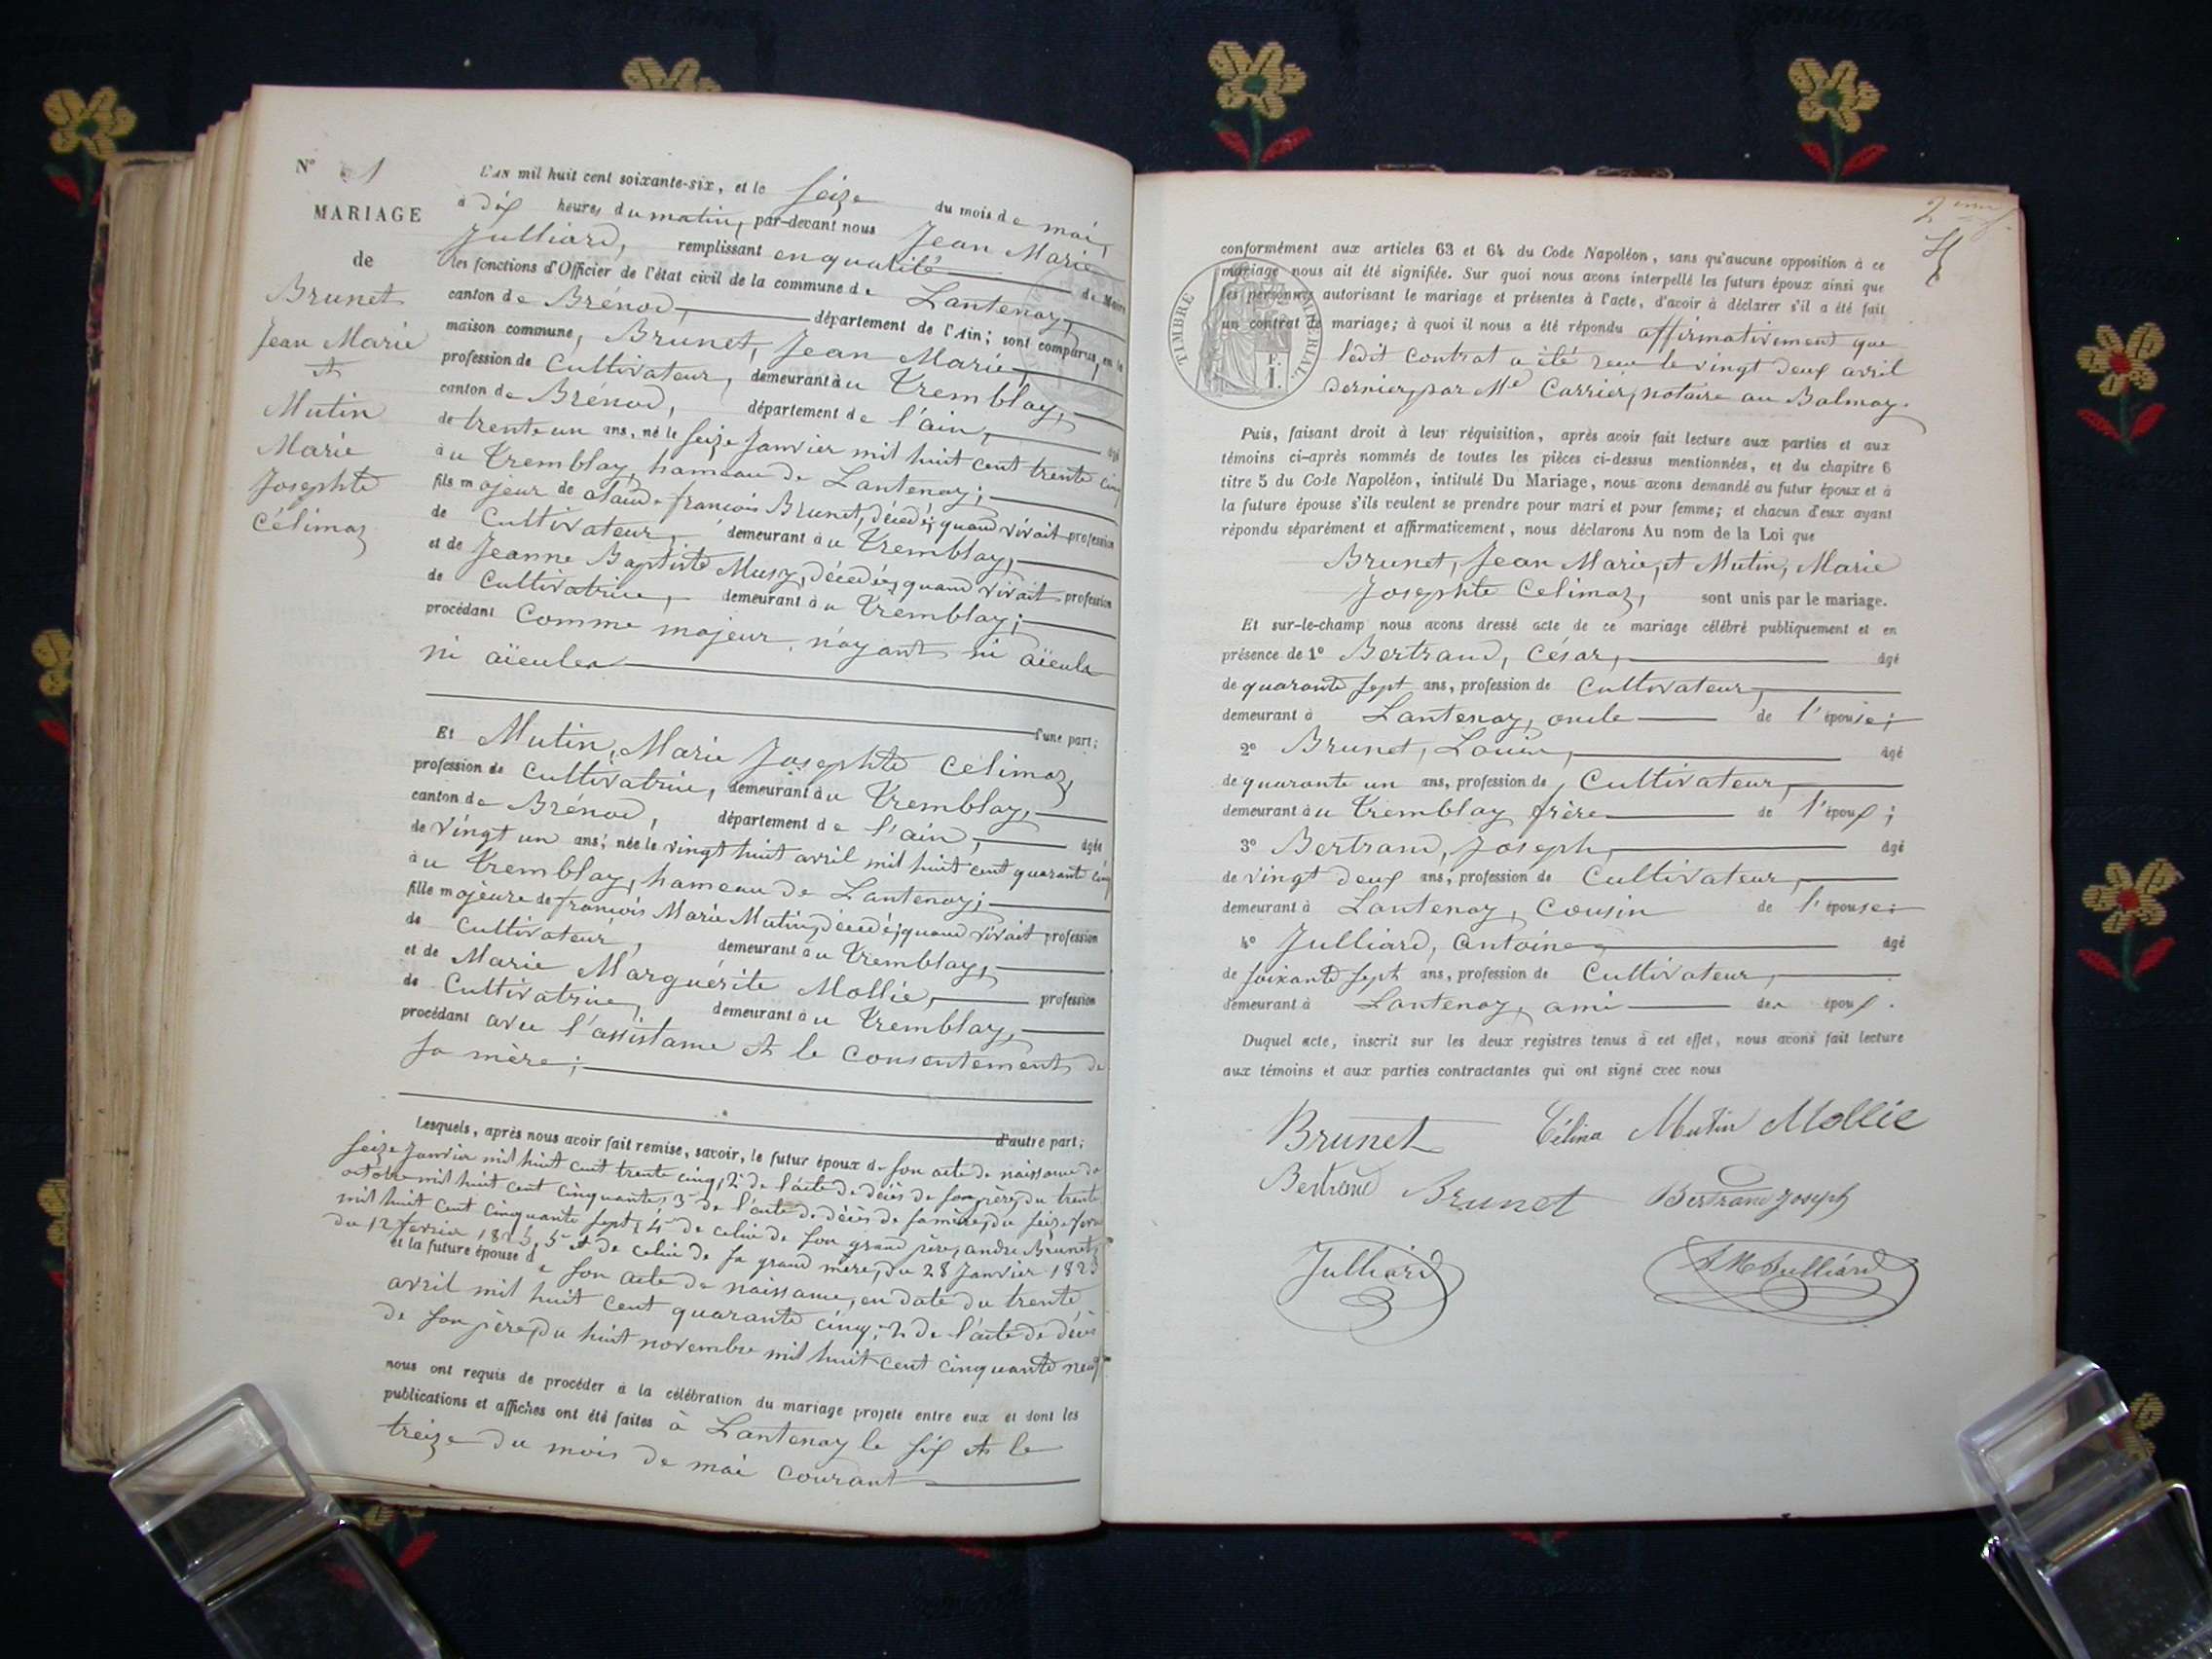 N° 1
MARIAGE
de
Brunet
Jean Marie
et
Mutin
Marie
Josephte
Célimaz
L'AN mil huit cent soixante-six, et le seize du mois de mai,
à dix heures du matin, par-devant nous Jean Marie
Julliard, remplissant en qualité de Maire
les fonctions d'Officier de l'état civil de la commune de Lantenay,
canton de Brénod, département de l'Ain; sont comparus, en la
maison commune, Brunet, Jean Marie,
profession de Cultivateur, demeurant au Tremblay,
canton de Brénod, département de l'ain, âgé
de trente un ans, né le seize Janvier mil huit cent trente cinq
au Tremblay, hameau de Lantenay;
fils majeur de claude françois Brunet, décedé; quand vivait profession
de Cultivateur, demeurant au Tremblay,
et de Jeanne Baptiste Musy, décedée, quand vivait profession
de Cultivatrice, demeurant au Tremblay;
procédant Comme majeur, n'ayant ni aïeuls
ni aïeules
d'une part;
Et Mutin, Marie Josephte Célimaz,
profession de Cultivatrice, demeurant au Tremblay,
canton de Brénod, département de l'ain, âgée
de vingt un ans, née le vingt huit avril mil huit cent quarante cinq
au Tremblay, hameau de Lantenay;
fille majeure de françois Marie Mutin, décedé; quand vivait profession
de Cultivateur, demeurant au Tremblay,
et de Marie Marguérite Mollie, profession
de Cultivatrice, demeurant au Tremblay,
procédant avec l'assistance et le consentement de
sa mère;
d'autre part;
Lesquels, après nous avoir fait remise, savoir, le futur époux de son acte de naissance du
seize Janvier mil huit cent trente cinq, 2° de l'acte de décès de son père, du trente
octobre mil huit cent cinquante, 3° de l'acte de décès de sa mère, du seize
mil huit cent cinquante sept, 4° de celui de son grand père, andré Brunet,
du 12 fevrier 1823, 5° et de celui de sa grand mère, du 28 Janvier 1823
et la future épouse de son acte de naissance, en date du trente
avril mil huit cent quarante cinq; 2 de l'acte de décès
de son père, du huit novembre mil huit cent cinquante neuf
nous ont requis de procéder à la célébration du mariage projeté entre eux et dont les
publications et affiches ont été faites à Lantenay le six et le
treize du mois de mai courant
2
conformément aux articles 63 et 64 du Code Napoléon, sans qu'aucune opposition à ce
mariage nous ait été signifiée. Sur quoi nous avons interpellé les futurs époux ainsi que
les personnes autorisant le mariage et présentes à l'acte, d'avoir à déclarer s'il a été fait
un contrat de mariage; à quoi il nous a été répondu affirmativement que
ledit contrat a été reçu le vingt deux avril
dernier, par Me Carrier, notaire au Balmay.
TIMBRE IMPERIAL
1 F.
Puis, faisant droit à leur réquisition, après avoir fait lecture aux parties et aux
témoins ci-après nommés de toutes les pièces ci-dessus mentionnées, et du chapitre 6
titre 5 du Code Napoléon, intitulé Du Mariage, nous avons demandé au futur époux et à
la future épouse s'ils veulent se prendre pour mari et pour femme; et chacun d'eux ayant
répondu séparément et affirmativement, nous déclarons Au nom de la Loi que
Brunet, Jean Marie, et Mutin, Marie
Josephte Celimaz, sont unis par le mariage.
Et sur-le-champ nous avons dressé acte de ce mariage célébré publiquement et en
présence de 1° Bertrand, César, âgé
de quarante sept ans, profession de Cultivateur,
demeurant à Lantenay, oncle de l'épouse;
2° Brunet, Louis, âgé
de quarante un ans, profession de Cultivateur,
demeurant au Tremblay frère de l'époux;
3° Bertrand, Joseph, âgé
de vingt deux ans, profession de Cultivateur,
demeurant à Lantenay, Cousin de l'épouse;
4° Julliard, Antoine, âgé
de soixante sept ans, profession de Cultivateur,
demeurant à Lantenay, ami des époux.
Duquel acte, inscrit sur les deux registres tenus à cet effet, nous avons fait lecture
aux témoins et aux parties contractantes qui ont signé avec nous
Brunet Célina Mutin Mollie
Bertrand Brunet Bertrand Joseph
Julliard JM Julliard